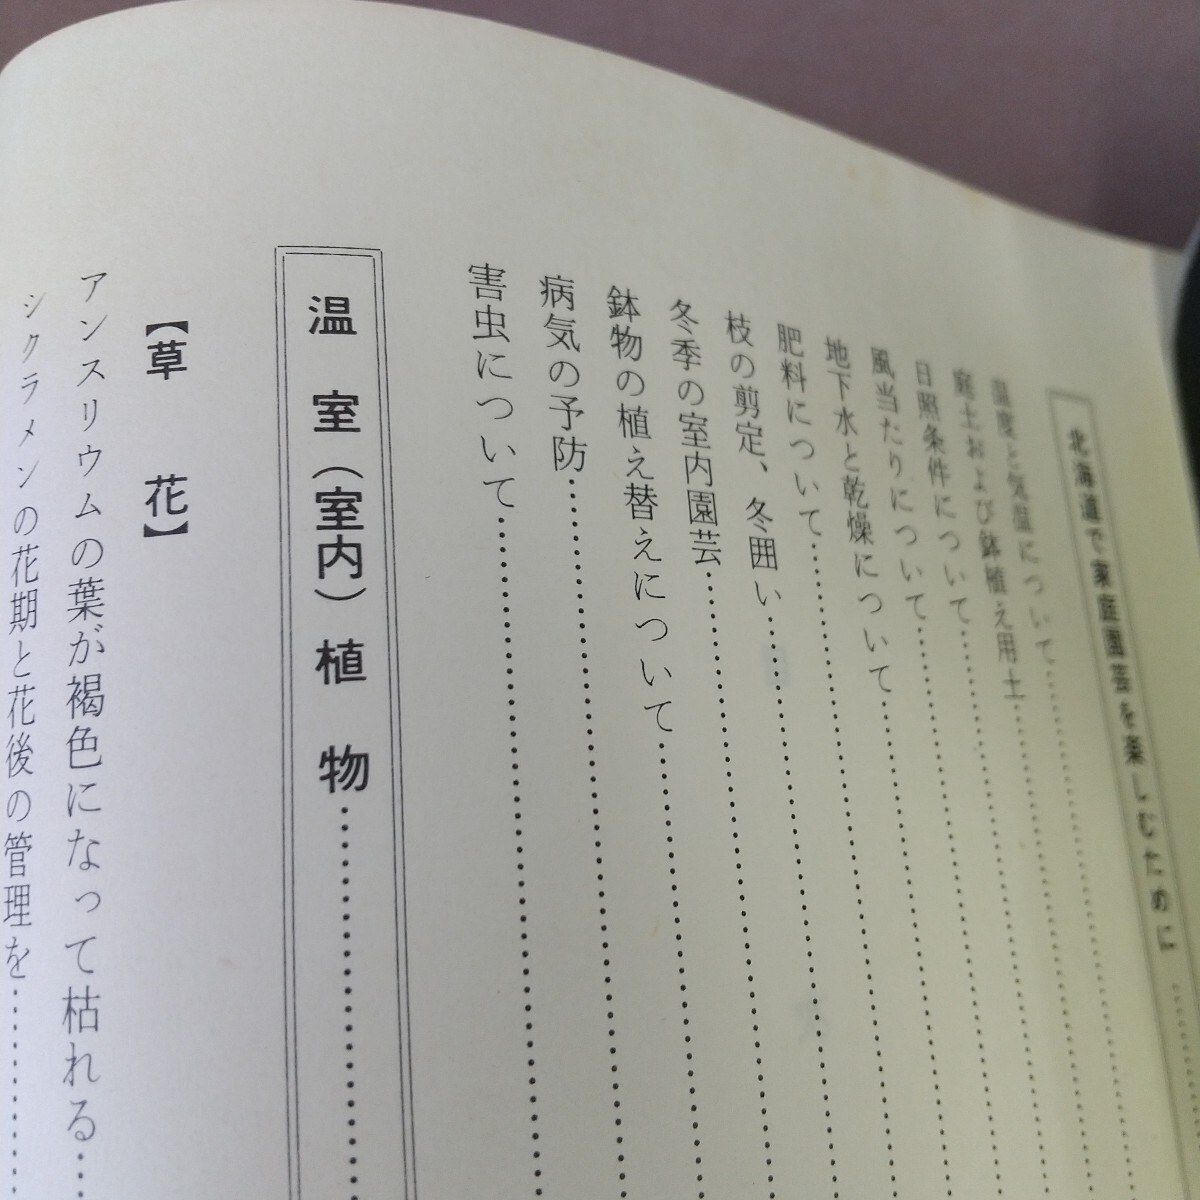 北海道で家庭園芸を楽しむために
温度と気温について
庭土および鉢植え用土
日照条件について
風当たりについて
地下水と乾燥について
肥料について
枝の剪定、冬囲い
冬季の室内園芸
鉢物の植え替えについて
病気の予防
害虫について
温室（室内）植物
【草花】
アンスリウムの葉が褐色になって枯れる
シクラメンの花期と花後の管理を